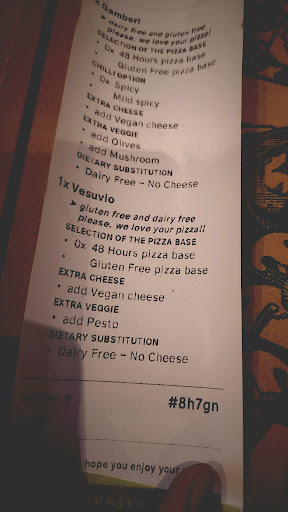 Gamberi
➤ dairy free and gluten free
please. we love your pizza!
SELECTION OF THE PIZZA BASE
• 0x 48 Hours pizza base
Gluten Free pizza base
CHILLI OPTION
• 0x Spicy
Mild spicy
EXTRA CHEESE
• add Vegan cheese
EXTRA VEGGIE
• add Olives
• add Mushroom
DIETARY SUBSTITUTION
• Dairy Free - No Cheese
1x Vesuvio
➤ gluten free and dairy free
please, we love your pizza!!
SELECTION OF THE PIZZA BASE
• 0x 48 Hours pizza base
• Gluten Free pizza base
EXTRA CHEESE
• add Vegan cheese
EXTRA VEGGIE
• add Pesto
DIETARY SUBSTITUTION
• Dairy Free - No Cheese
#8h7gn
hope you enjoy your